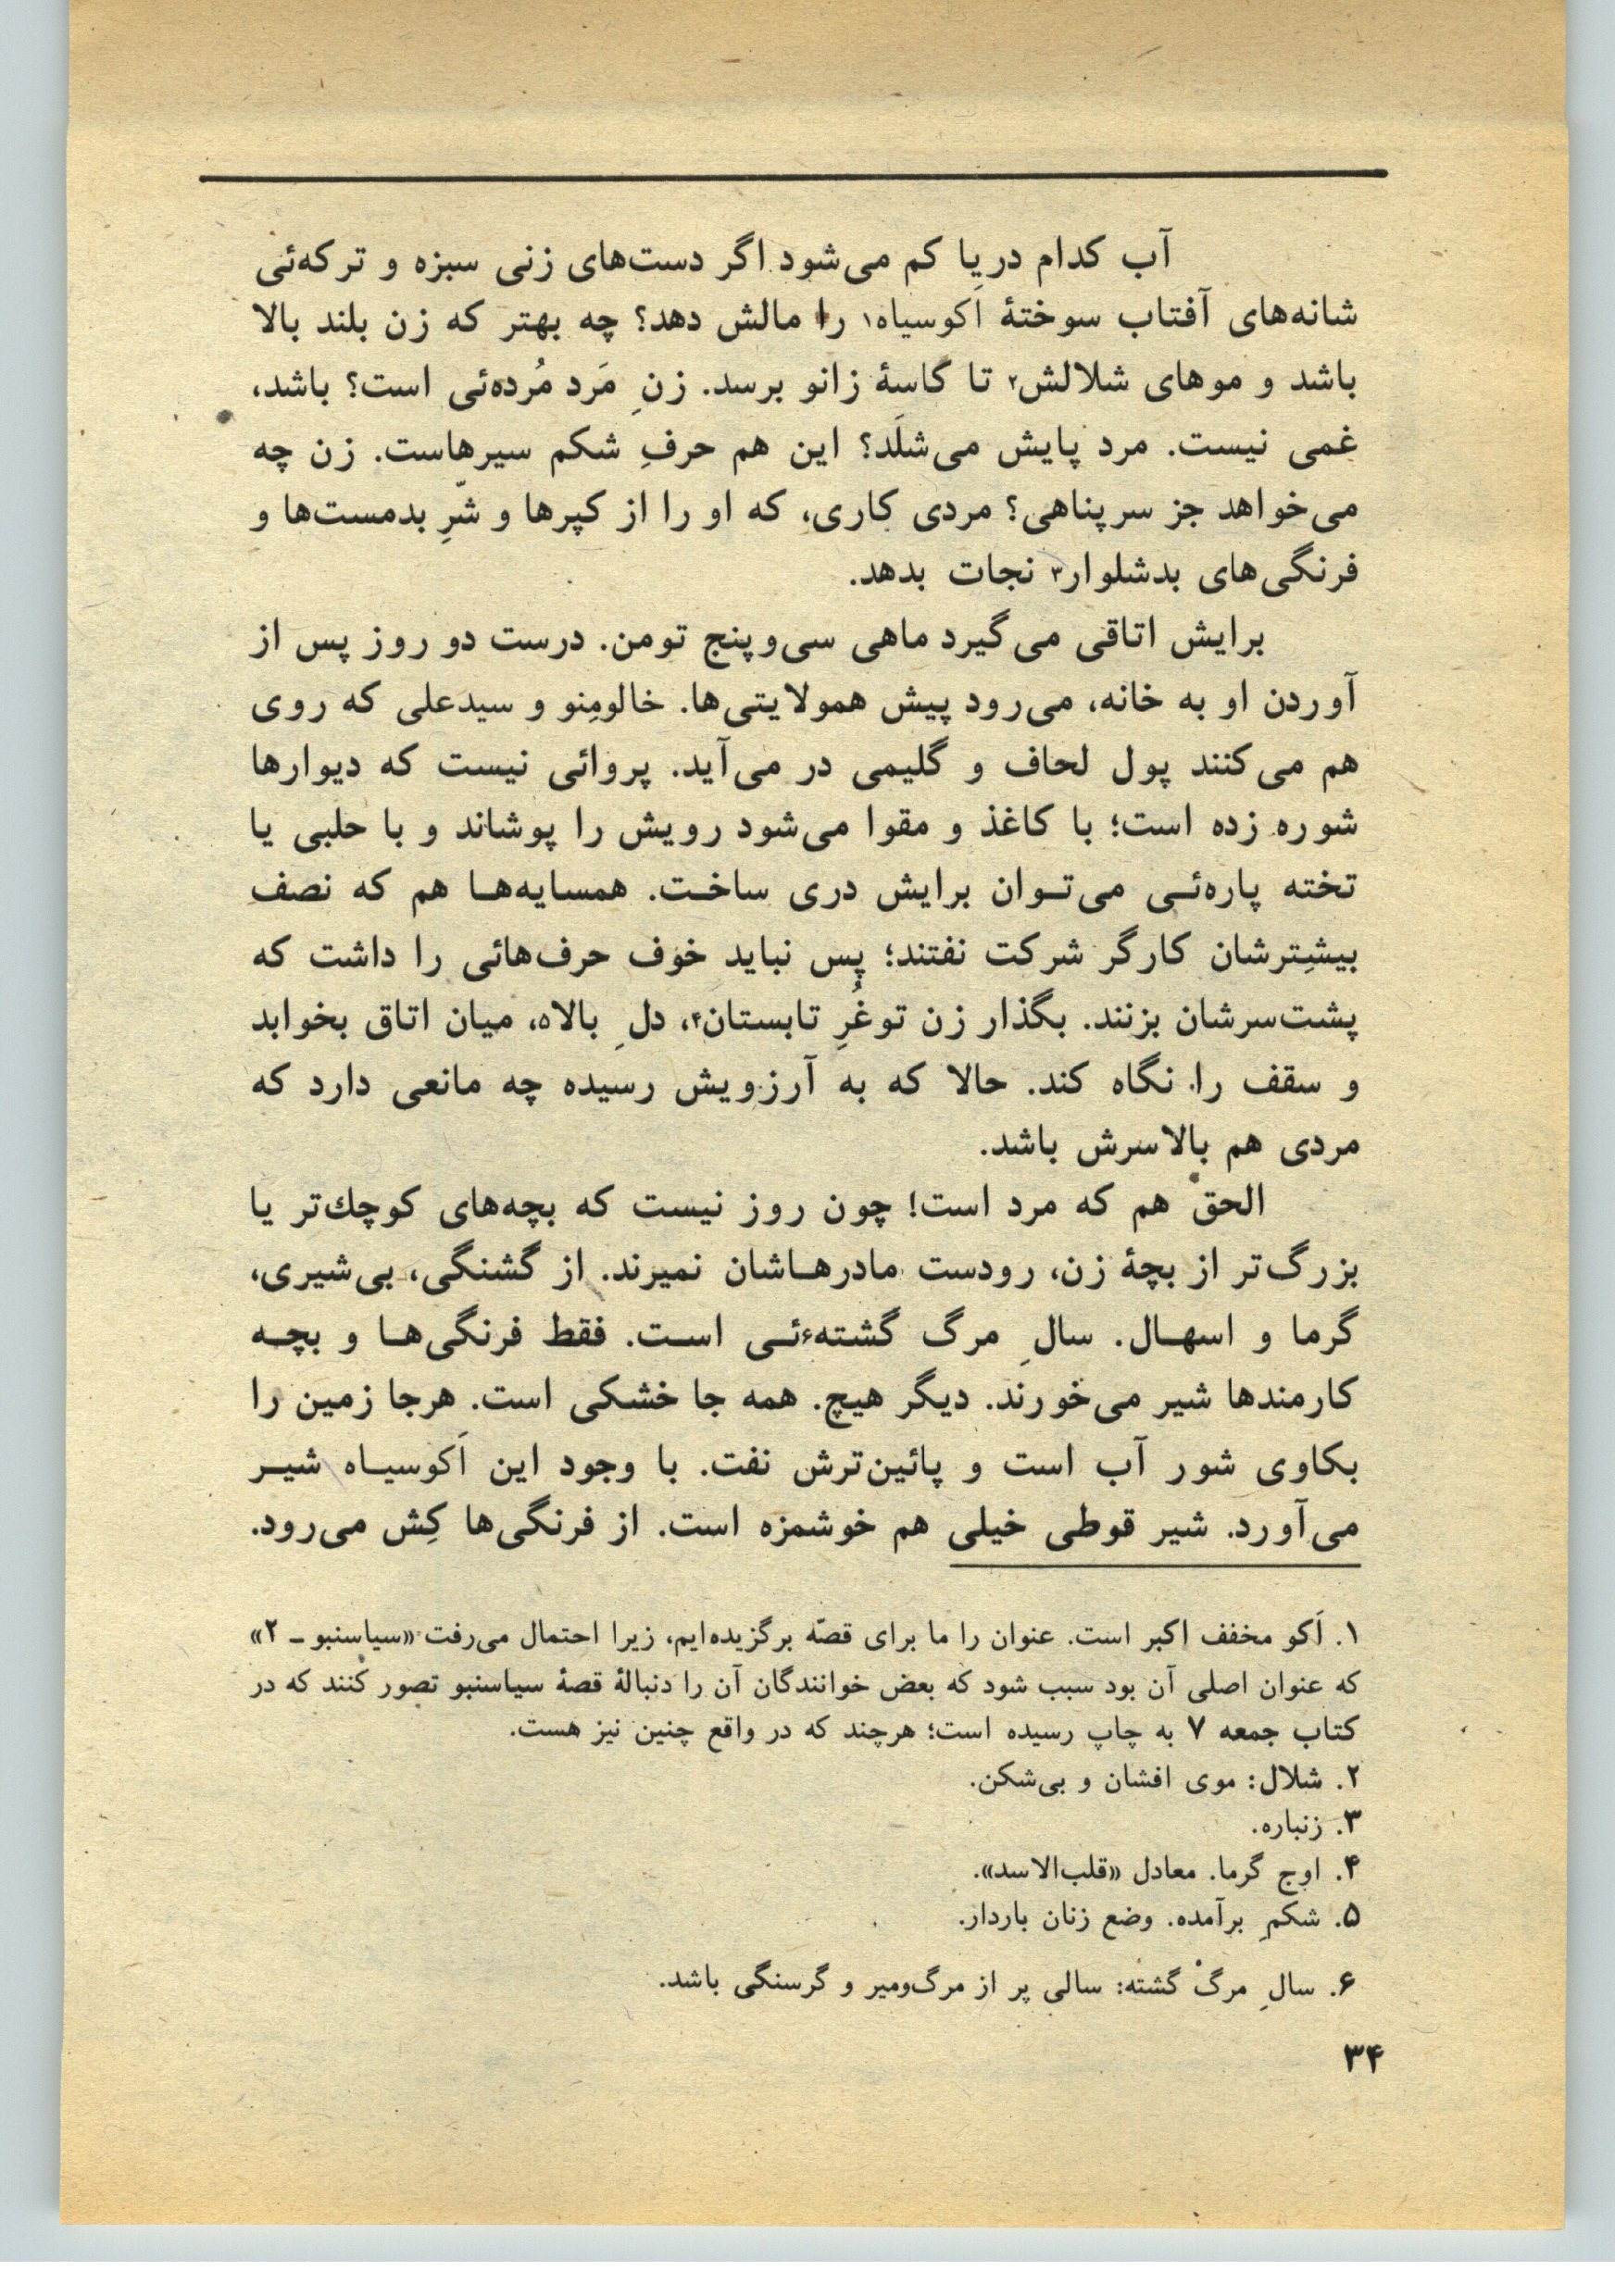 آب کدام دریا کم می‌شود اگر دست‌های زنی سبزه و ترکه‌ئی
شانه‌های آفتاب سوختهٔ اَکوسیاه۱ را مالش دهد؟ چه بهتر که زن بلند بالا
باشد و موهای شلالش۲ تا کاسهٔ زانو برسد. زنِ مَرد مُرده‌ئی است؟ باشد،
غمی نیست. مرد پایش می‌شلَد؟ این هم حرفِ شکم سیرهاست. زن چه
می‌خواهد جز سرپناهی؟ مردی کاری، که او را از کپرها و شرّ‌ِ بدمست‌ها و
فرنگی‌های بدشلوار۳ نجات بدهد.
برایش اتاقی می‌گیرد ماهی سی‌و‌پنج تومن. درست دو روز پس از
آوردن او به خانه، می‌رود پیش همولایتی‌ها. خالومِنو و سیدعلی که روی
هم می‌کنند پول لحاف و گلیمی در می‌آید. پروائی نیست که دیوارها
شوره زده است؛ با کاغذ و مقوا می‌شود رویش را پوشاند و با حلبی یا
تخته پاره‌ئی می‌توان برایش دری ساخت. همسایه‌ها هم که نصف
بیشترشان کارگر شرکت نفتند؛ پس نباید خوف حرف‌هائی را داشت که
پشت‌سرشان بزنند. بگذار زن تو غُرِ تابستان۴، دلِ بالا۵، میان اتاق بخوابد
و سقف را نگاه کند. حالا که به آرزویش رسیده چه مانعی دارد که
مردی هم بالاسرش باشد.
الحق هم که مرد است! چون روز نیست که بچه‌های کوچك‌تر یا
بزرگ‌تر از بچهٔ زن، رودست مادرهاشان نمیرند. از گشنگی، بی‌شیری،
گرما و اسهال. سالِ مرگ گشته۶ئی است. فقط فرنگی‌ها و بچه
کارمندها شیر می‌خورند. دیگر هیچ. همه جا خشکی است. هرجا زمین را
بکاوی شور آب است و پائین‌ترش نفت. با وجود این اَکوسیاه شیر
می‌آورد. شیر قوطی خیلی هم خوشمزه است. از فرنگی‌ها کِش می‌رود.
۱. اَکو مخفف اکبر است. عنوان را ما برای قصّه برگزیده‌ایم، زیرا احتمال می‌رفت «سیاسنبو ـ ۲»
که عنوان اصلی آن بود سبب شود که بعض خوانندگان آن را دنبالهٔ قصهٔ سیاسنبو تصور کنند که در
کتاب جمعه ۷ به چاپ رسیده است؛ هرچند که در واقع چنین نیز هست.
۲. شلال: موی افشان و بی‌شکن.
۳. زنباره.
۴. اوج گرما. معادل «قلب‌الاسد».
۵. شکمِ برآمده. وضع زنان باردار.
۶. سالِ مرگ گشته: سالی پر از مرگ‌ومیر و گرسنگی باشد.
۳۴